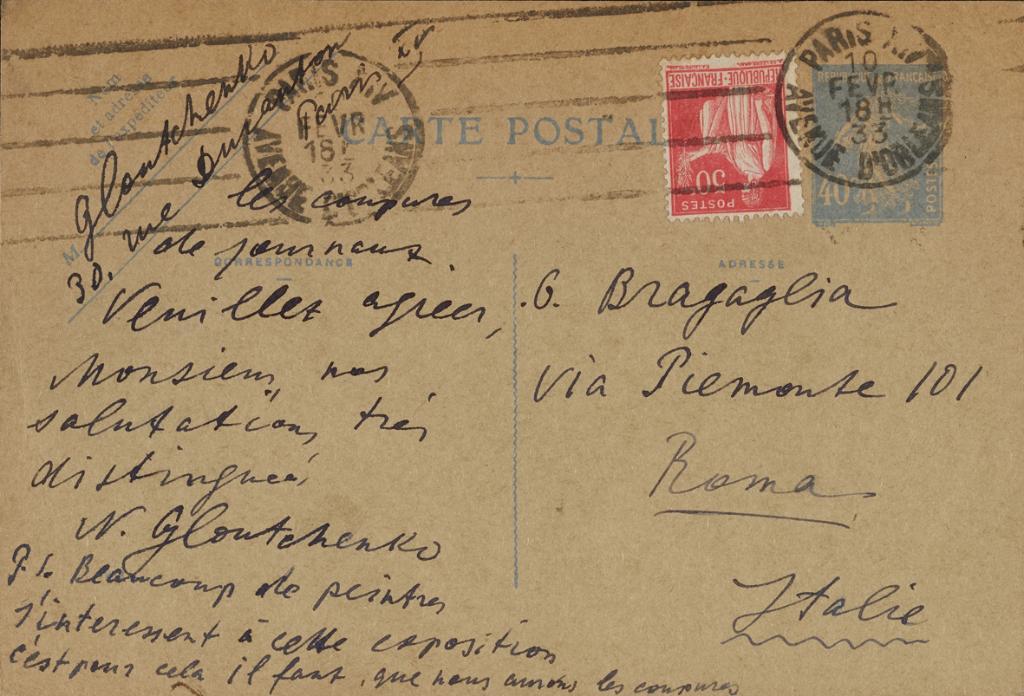 Nom
et adresse
de l'expéditeur
M
Gloutchenko
30, rue Duranton
Paris
PARIS XIV
FEVR
18H
33
AVENUE D'ORLEANS
CARTE POSTALE
RÉPUBLIQUE FRANÇAISE
50
POSTES
PARIS XIV
10
FEVR
18H
33
AVENUE D'ORLEANS
RÉPUBLIQUE FRANÇAISE
40
POSTES
CORRESPONDANCE
les coupures
de journaux.
Veuillez agréer,
Monsieur, nos
salutations très
distinguées
N. Gloutchenko
P.S. Beaucoup de peintres
s'interessent à cette exposition
c'est pour cela il faut, que nous aurons les coupures
ADRESSE
G. Bragaglia
via Piemonte 101
Roma
Italie